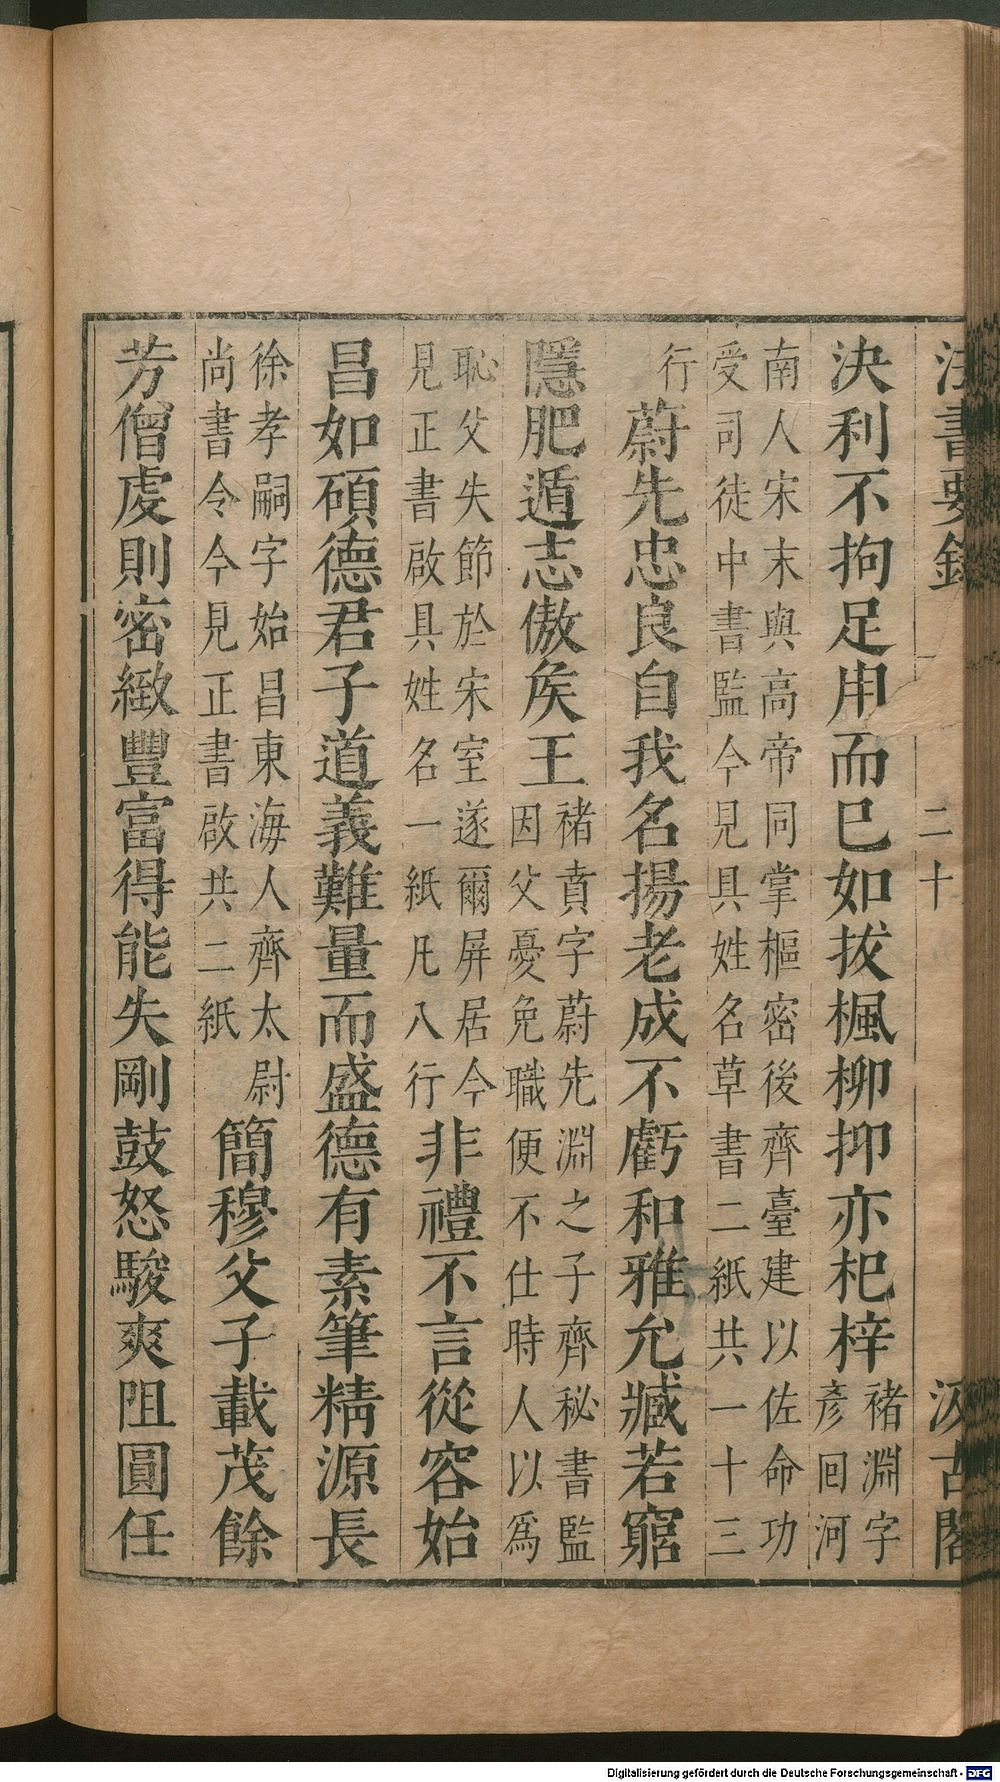 法書要錄 一 二十 汲古閣
決利不拘足用而巳如拔楓柳抑亦杞梓褚淵字
彥回河
南人宋末與高帝同掌樞密後齊臺建以佐命功
受司徒中書監今見具姓名草書二紙共一十三
行
蔚先忠良自我名揚老成不虧和雅允臧若窮
隱肥遁志傲侯王褚賁字蔚先淵之子齊秘書監
因父憂免職便不仕時人以爲
恥父失節於宋室遂爾屏居今
見正書啟具姓名一紙凡八行非禮不言從容始
昌如碩德君子道義難量而盛德有素筆精源長
徐孝嗣字始昌東海人齊太尉
尚書令今見正書啟共二紙簡穆父子載茂餘
芳僧虔則密緻豐富得能失剛鼓怒駿爽阻圓任
Digitalisierung gefördert durch die Deutsche Forschungsgemeinschaft - DFG